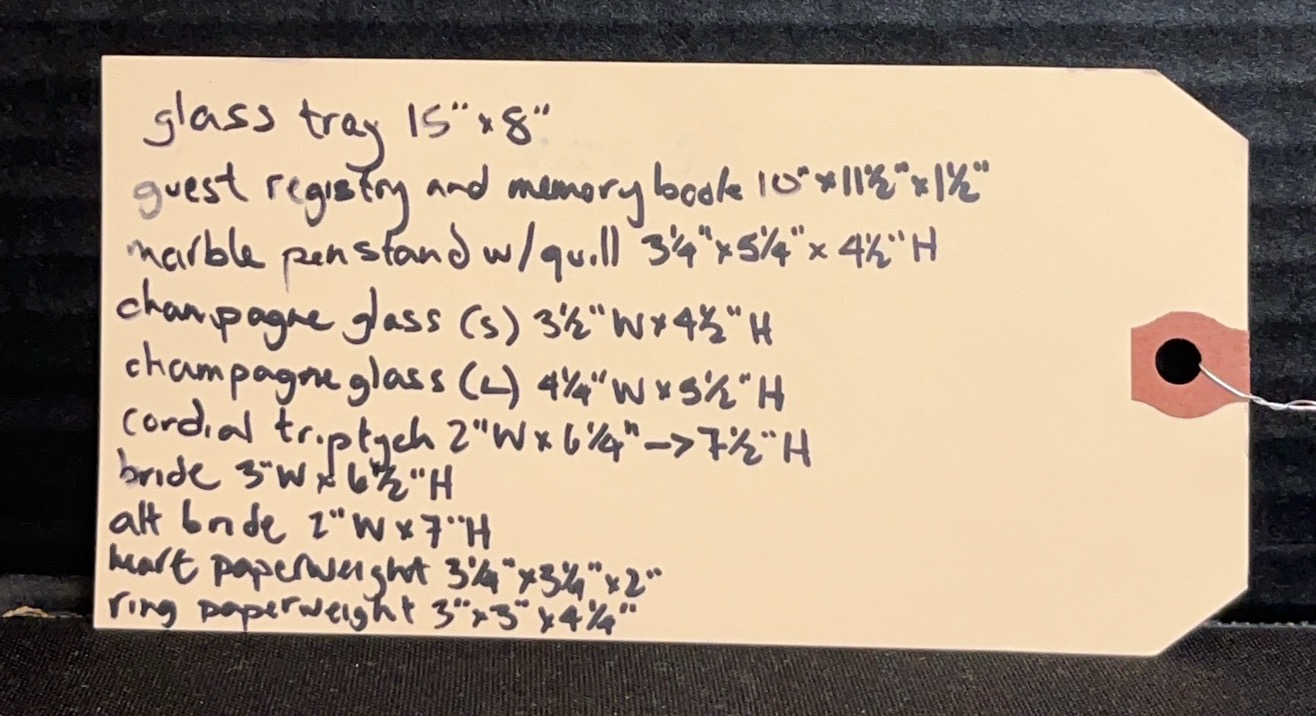 glass tray 15" x 8"
guest registry and memory book 10" x 11½" x 1½"
marble pen stand w/ quill 3¼" x 5¼" x 4½" H
champagne glass (S) 3½" W x 4½" H
champagne glass (L) 4¼" W x 5½" H
cordial triptych 2" W x 6¼" -> 7½" H
bride 3" W x 6½" H
alt bride 2" W x 7" H
heart paperweight 3¼" x 3¼" x 2"
ring paperweight 3" x 3" x 4¼"